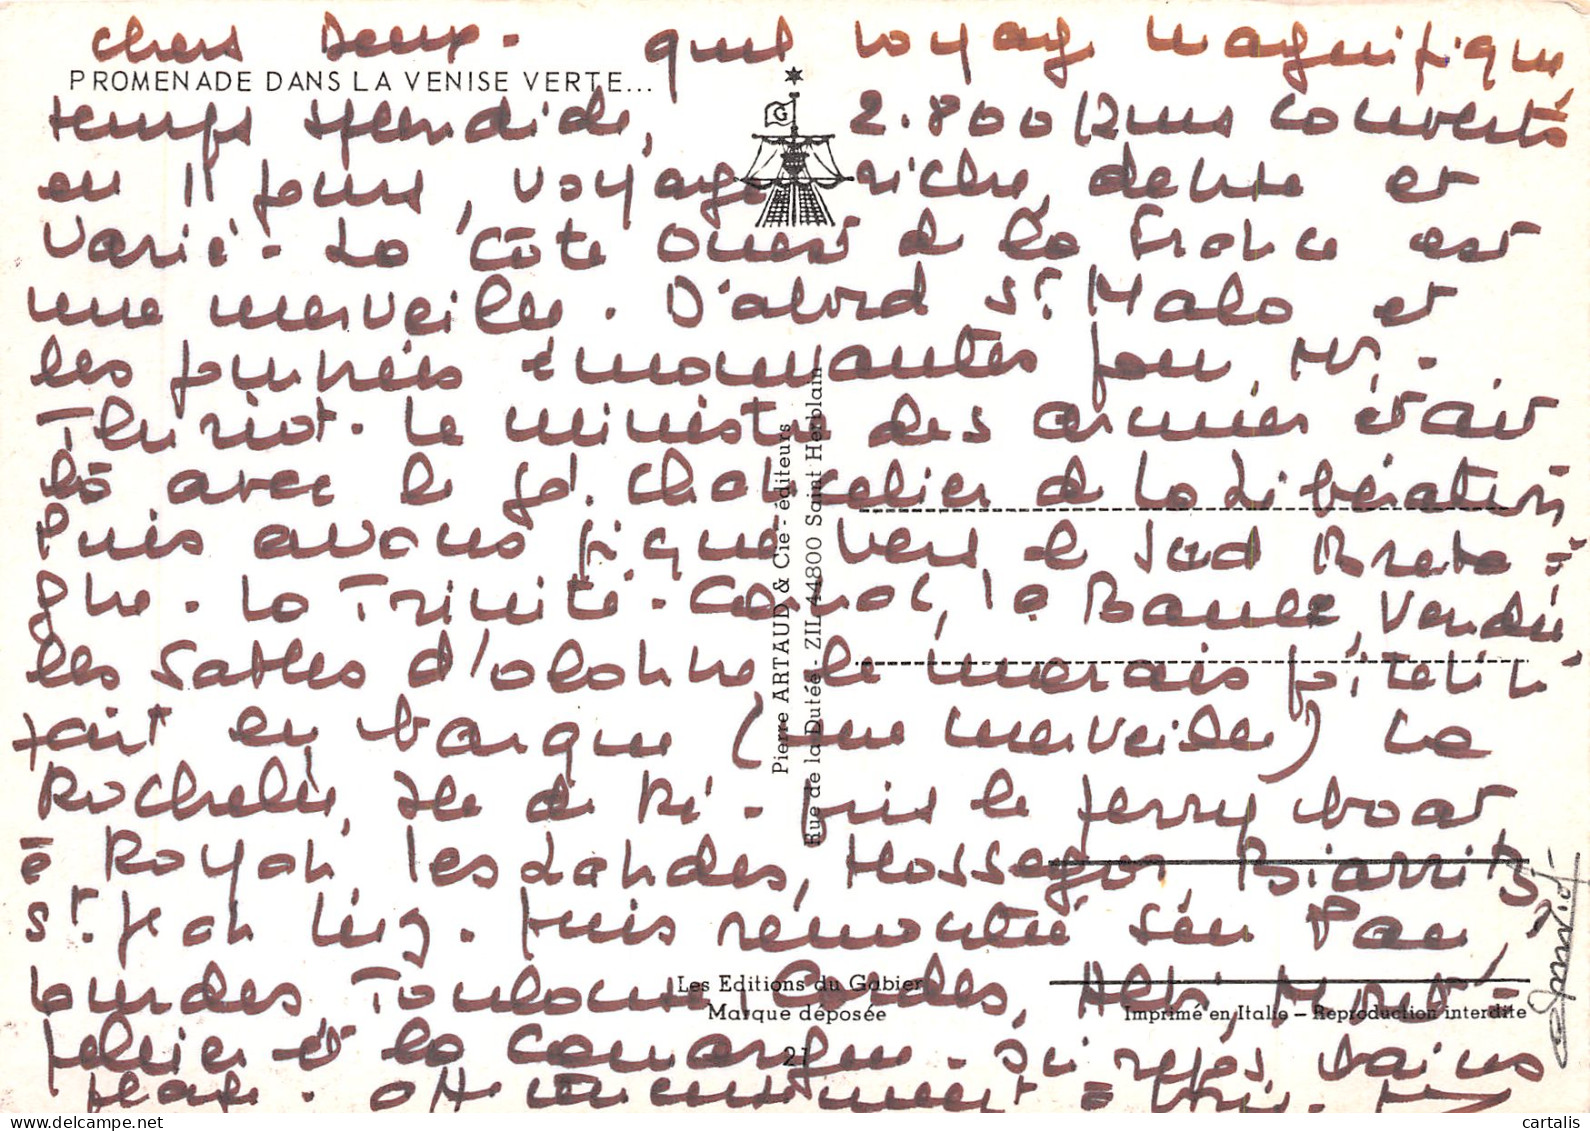 chers deux - quel voyage magnifique,
PROMENADE DANS LA VENISE VERTE...
G
temps splendide, 2.800 Kms couverts
en 11 jours, voyage riche, dense et
varié - La Côte Ouest de la France est
une merveille. D'abord St Malo et
les journées émouvantes pour Mr.
Thuriot. Le ministre des armées était
là avec le gd. chancelier de la Libération
Puis avons piqué vers le Sud Breta-
gne - La Trinité - Carnac, la Baule, Vendée
les Sables d'Olonne, le marais poitevin
fait en barque (une merveille) La
Rochelle, Ile de Ré - puis le ferry boat
à Royan, les Landes, Hossegor, Biarritz,
St. Jean Luz - puis remontée sur Pau,
Lourdes, Toulouse, Cordes, Albi, Mont-
pellier et la Camargue - Ici repos, bains
plage. Affectueusement à vous.
Pierre ARTAUD & Cie - éditeurs
Rue de la Dutée - ZIL 44800 Saint Herblain
Les Editions du Gabier
Marque déposée
Imprimé en Italie - Reproduction interdite
27
© delcampe.net
cartalis